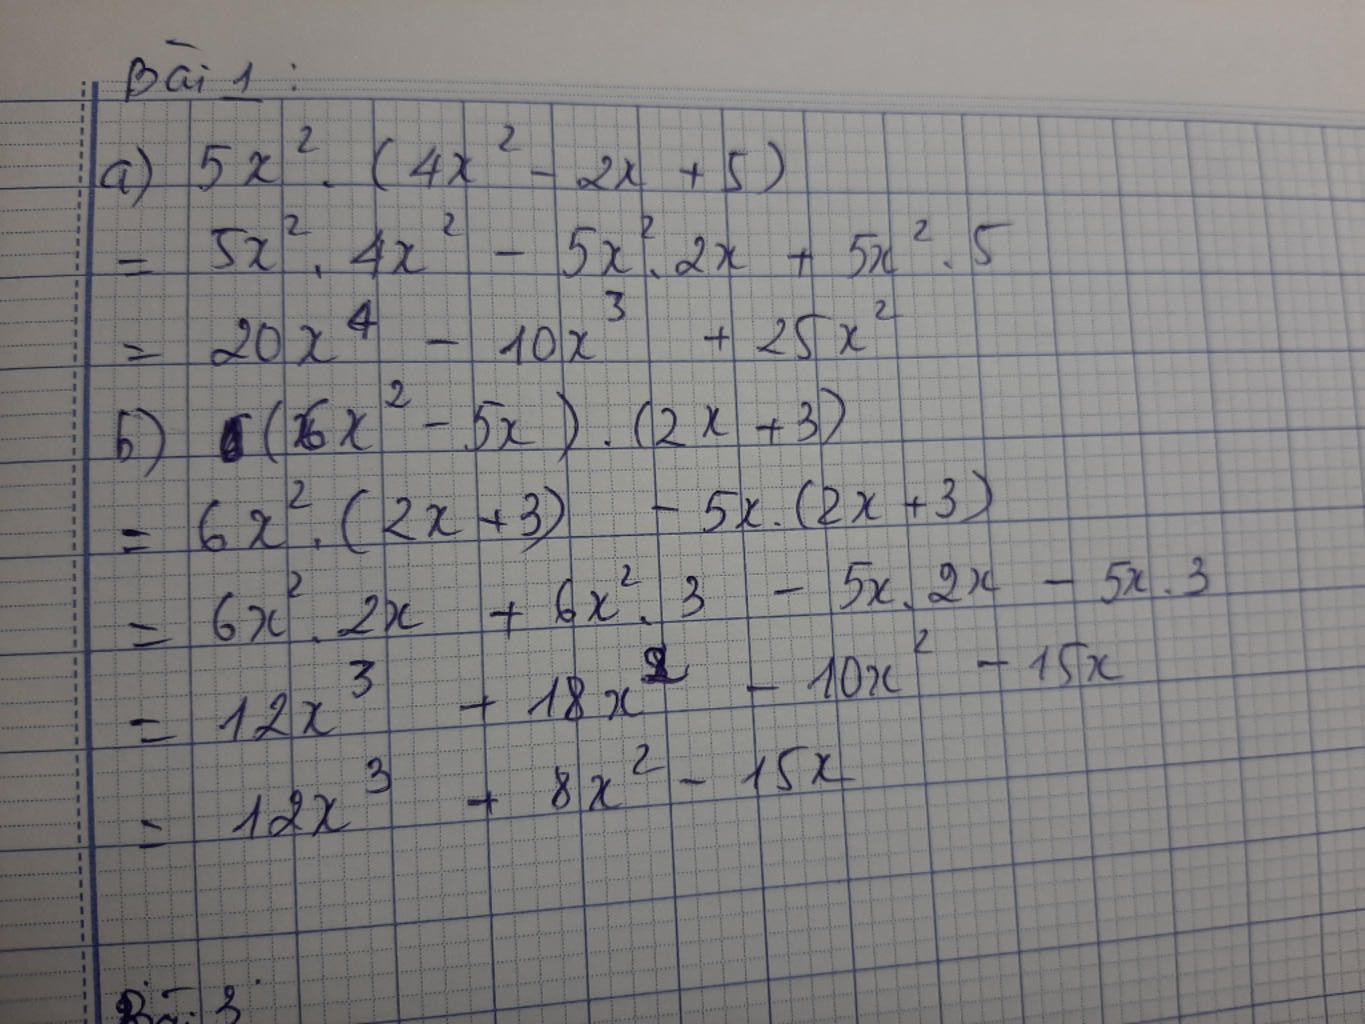 Bài 1 :
a) 5x² . (4x² - 2x + 5)
= 5x² . 4x² - 5x² . 2x + 5x² . 5
= 20x⁴ - 10x³ + 25x²
b) (6x² - 5x) . (2x + 3)
= 6x² . (2x + 3) - 5x . (2x + 3)
= 6x² . 2x + 6x² . 3 - 5x . 2x - 5x . 3
= 12x³ + 18x² - 10x² - 15x
= 12x³ + 8x² - 15x